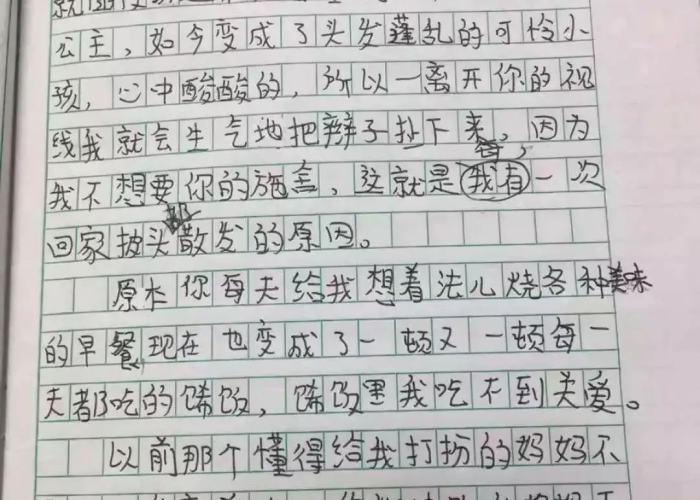 公主，如今变成了头发蓬乱的可怜小
孩，心中酸酸的，所以一离开你的视
线我就会生气地把辫子扯下来，因为
我不想要你的施舍，这就是我每有一次
回家都披头散发的原因。
原本你每天给我想着法儿烧各种美味
的早餐，现在也变成了一顿又一顿每一
天都吃的馊饭，馊饭里我吃不到关爱。
以前那个懂得给我打扮的妈妈不